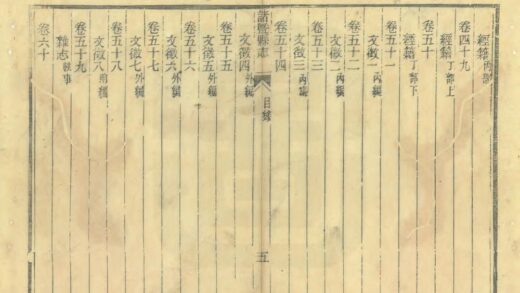 經籍丙部
卷四十九
經籍丁部上
卷五十
經籍丁部下
卷五十一
文徵一內編
卷五十二
文徵二內編
卷五十三
文徵三內編
卷五十四
諸暨縣志
目錄
五
文徵四外編
卷五十五
文徵五外編
卷五十六
文徵六外編
卷五十七
文徵七外編
卷五十八
文徵八附編
卷五十九
雜志軼事
卷六十